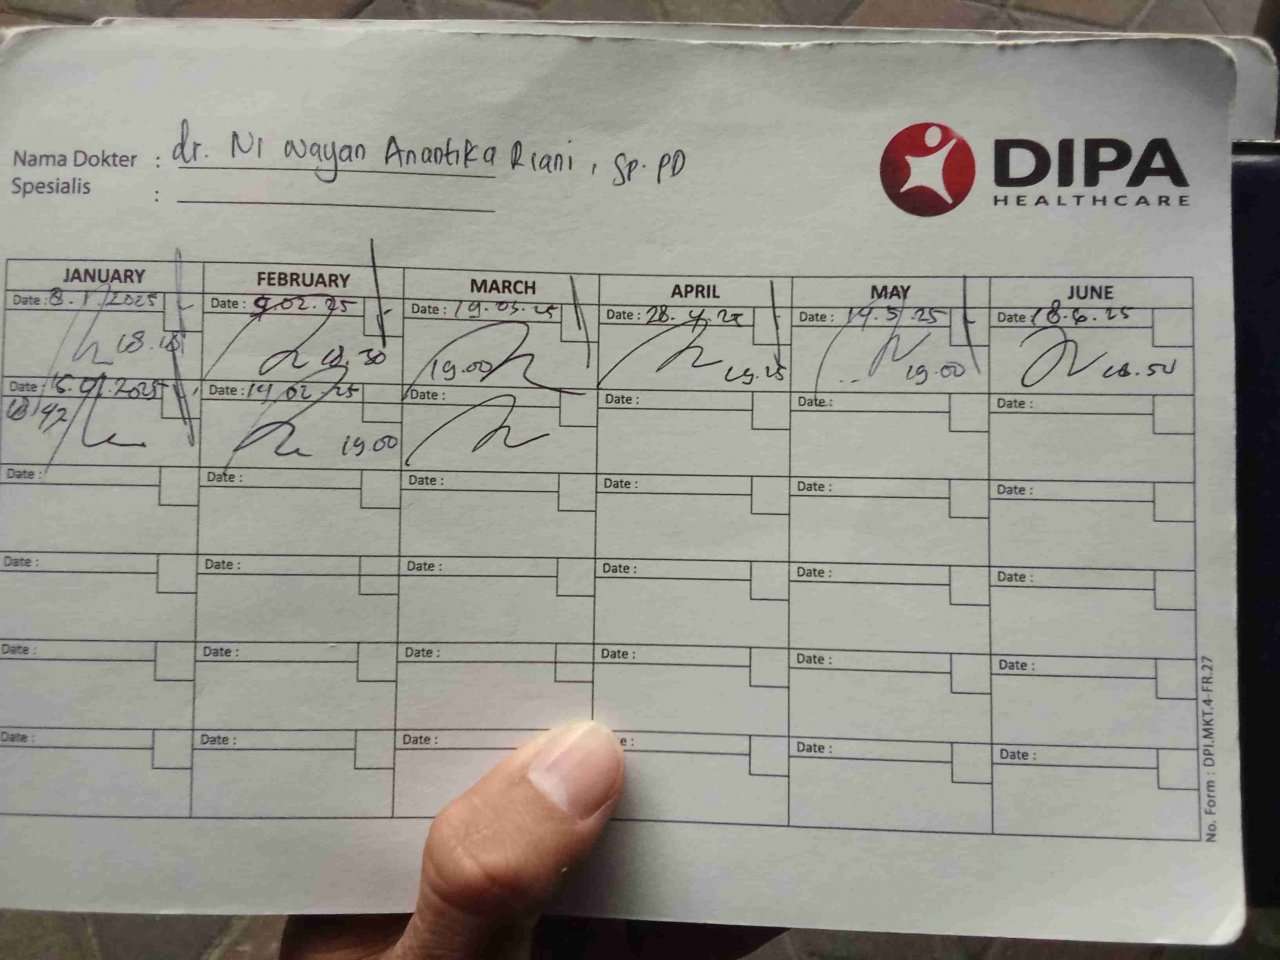 Nama Dokter : dr. Ni Wayan Anantika Riani, Sp.PD
Spesialis :
DIPA
HEALTHCARE
JANUARY FEBRUARY MARCH APRIL MAY JUNE
Date : 8.1.2025 Date : 9.02.25 Date : 19.03.25 Date : 28.4.25 Date : 14.5.25 Date : 18.6.25
18.18 18.30 19.00 19.25 19.00 18.54
Date : 15.01.2025 Date : 19.02.25 Date : Date : Date : Date :
18 42 19.00
Date : Date : Date : Date : Date : Date :
Date : Date : Date : Date : Date : Date :
Date : Date : Date : Date : Date : Date :
Date : Date : Date : e : Date : Date :
No. Form : DPI.MKT.4-FR.27